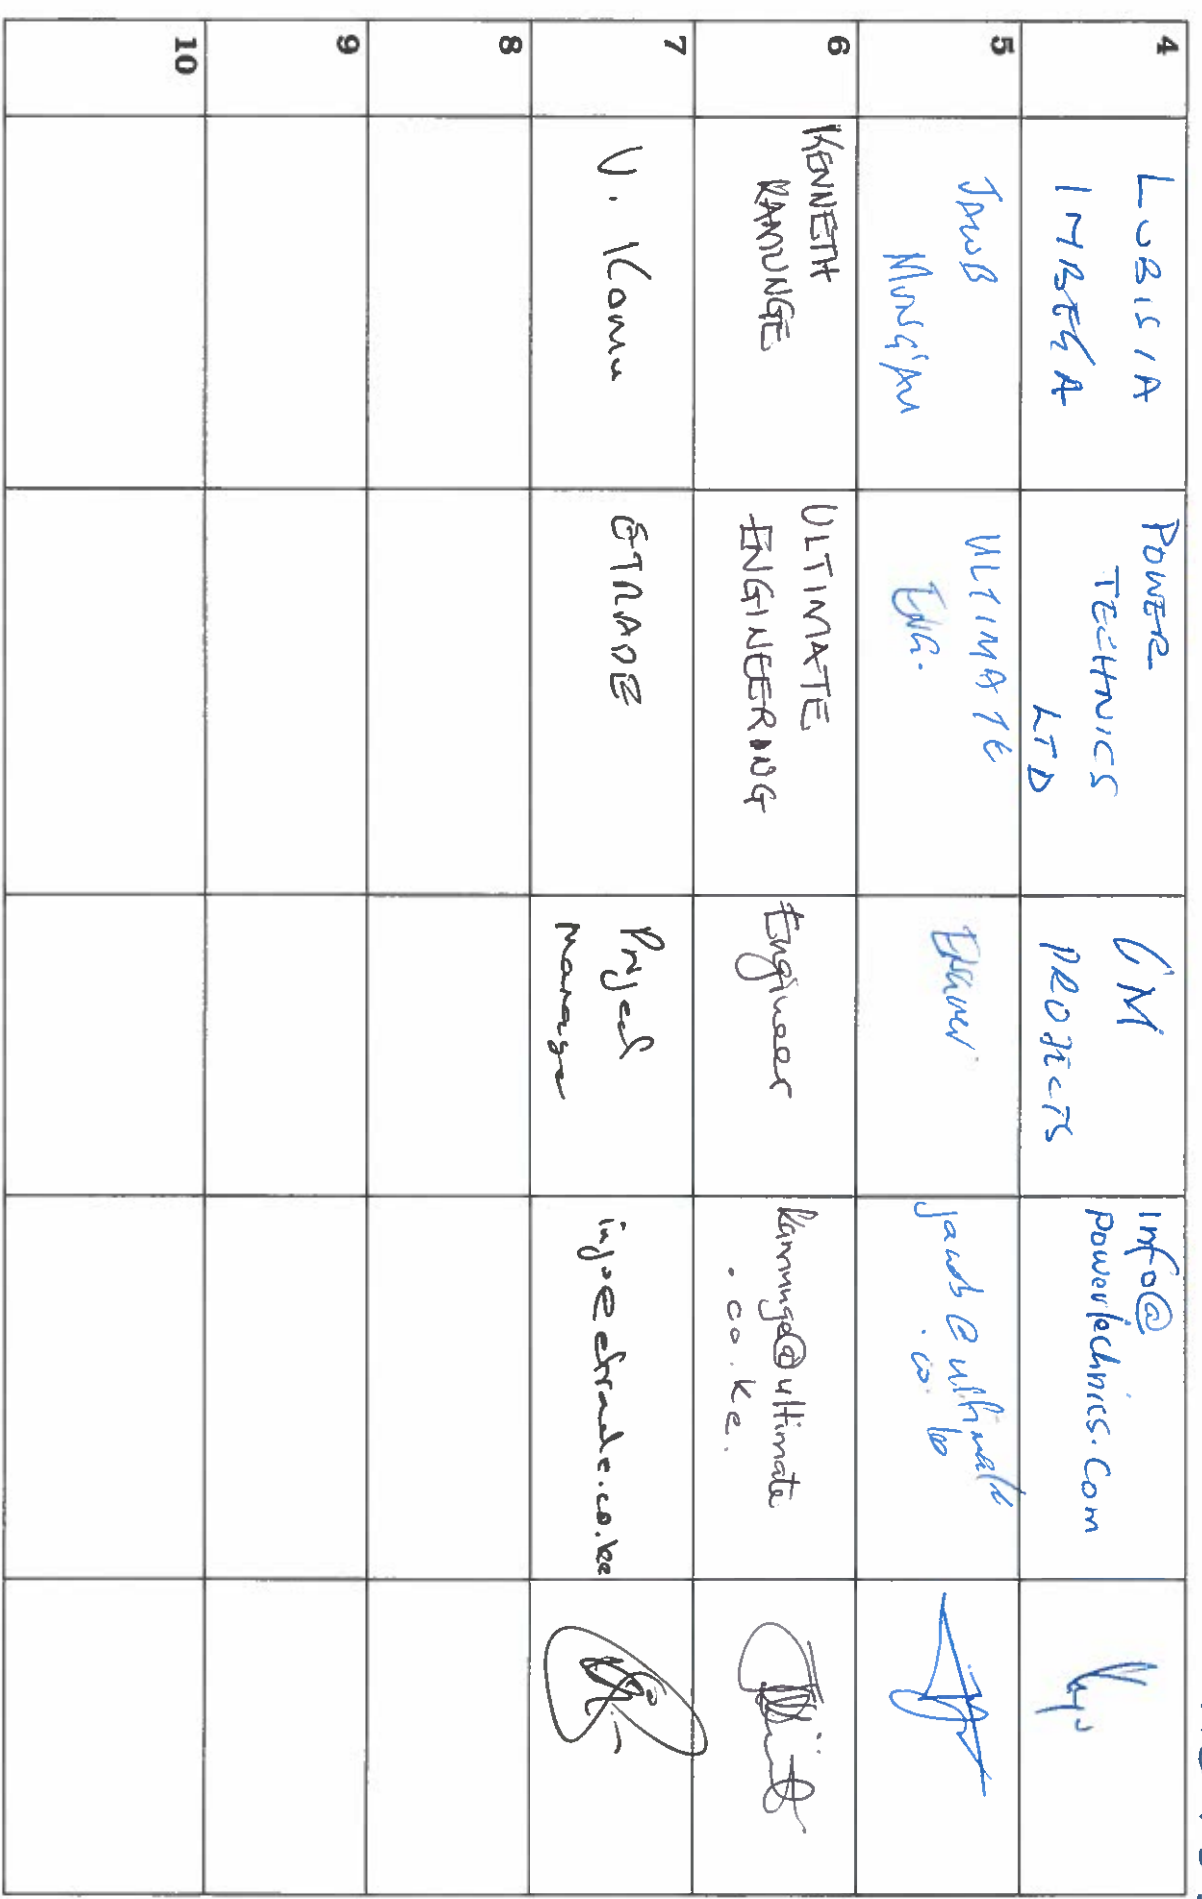 4
LUBISIA
IMBEGA
POWER
TECHNICS
LTD
CM
PROJECTS
Info@
Powertechnics.Com
5
JACOB
MUNG'AU
ULTIMATE
ENG.
6
KENNETH
KAMUNGE
ULTIMATE
ENGINEERING
Engineer
Kamunge@ultimate
.co.ke.
7
V. Kamu
ETRADE
Project
manager
8
9
10